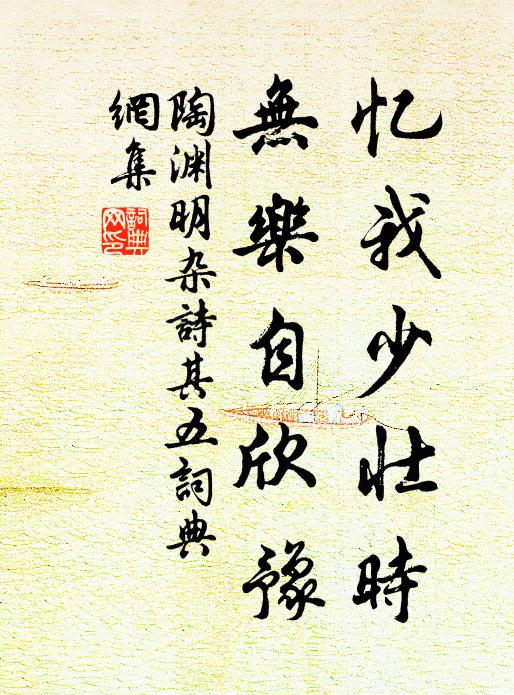 忆我少壮時
無樂自欣豫
陶渊明杂詩其五詞典
網集
詞典
网印